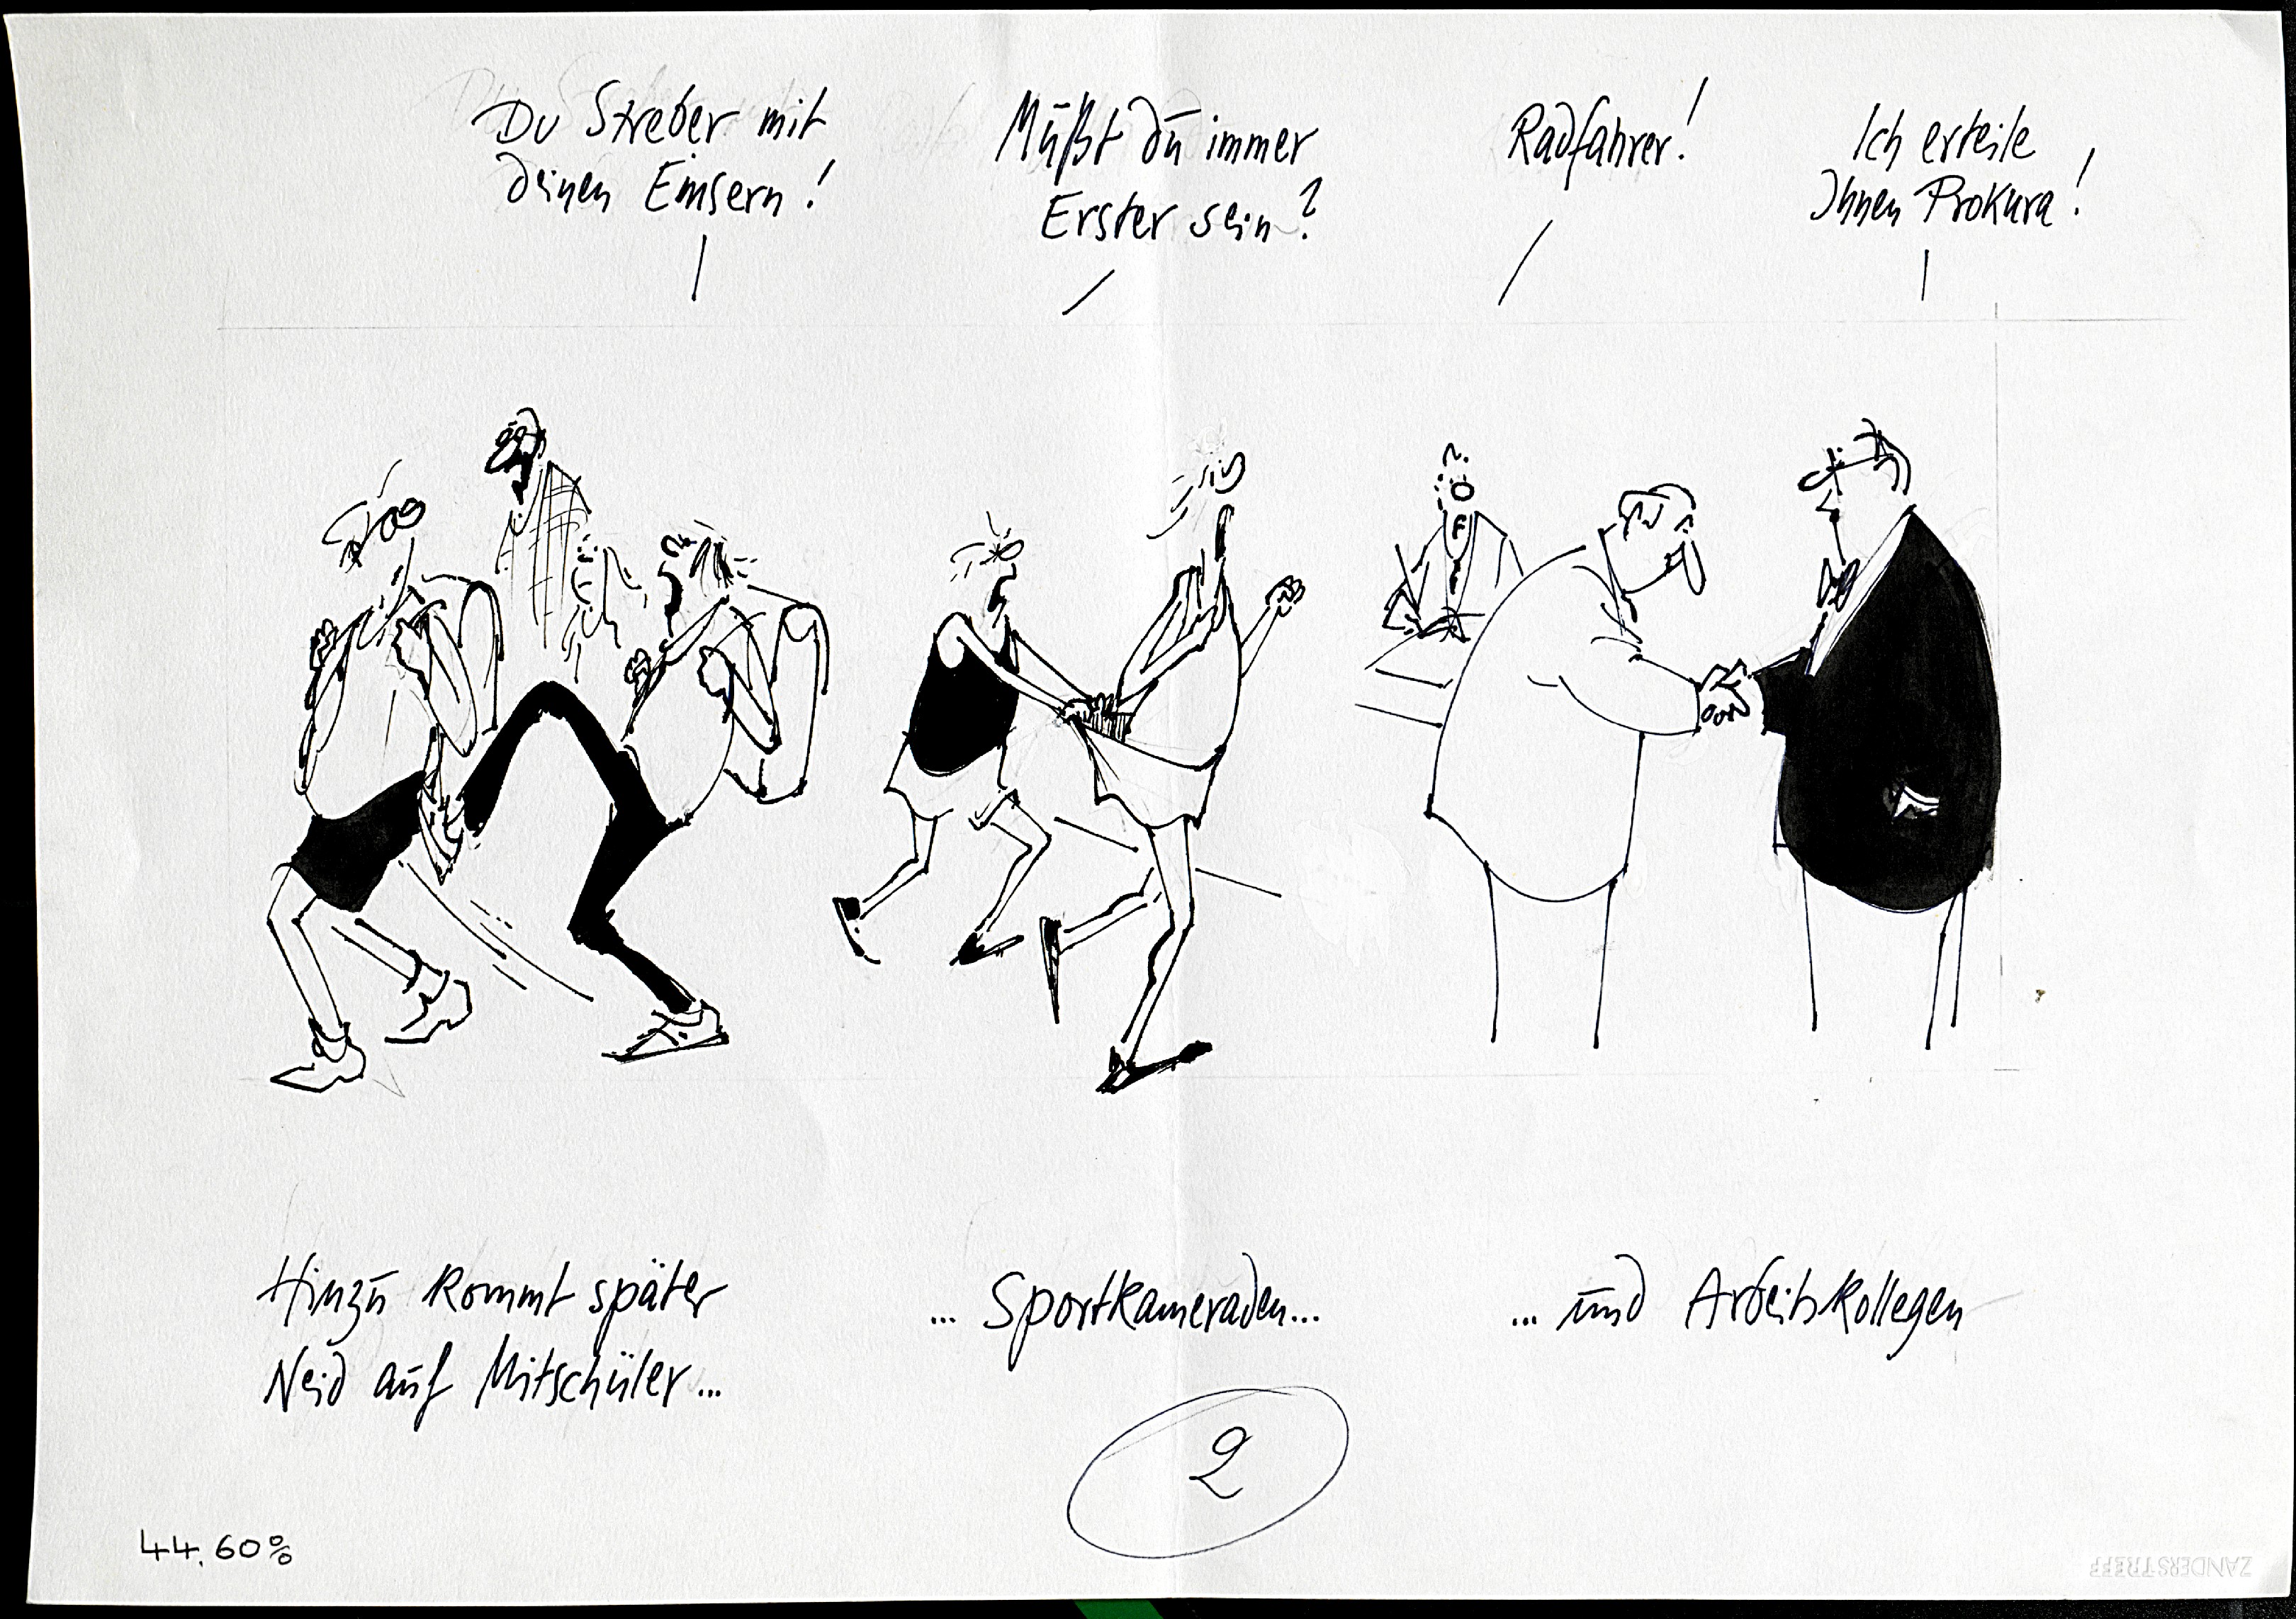 Du Streber mit
deinen Einsern!
Müßt dū immer
Erster sein?
Radfahrer!
Ich erteile
Ihnen Prokura!
Hinzū kommt später
Neid aūf Mitschüler...
... Sportkameraden...
... ūnd Arbeitskollegen
2
44.60%
ZANDERSTREFF